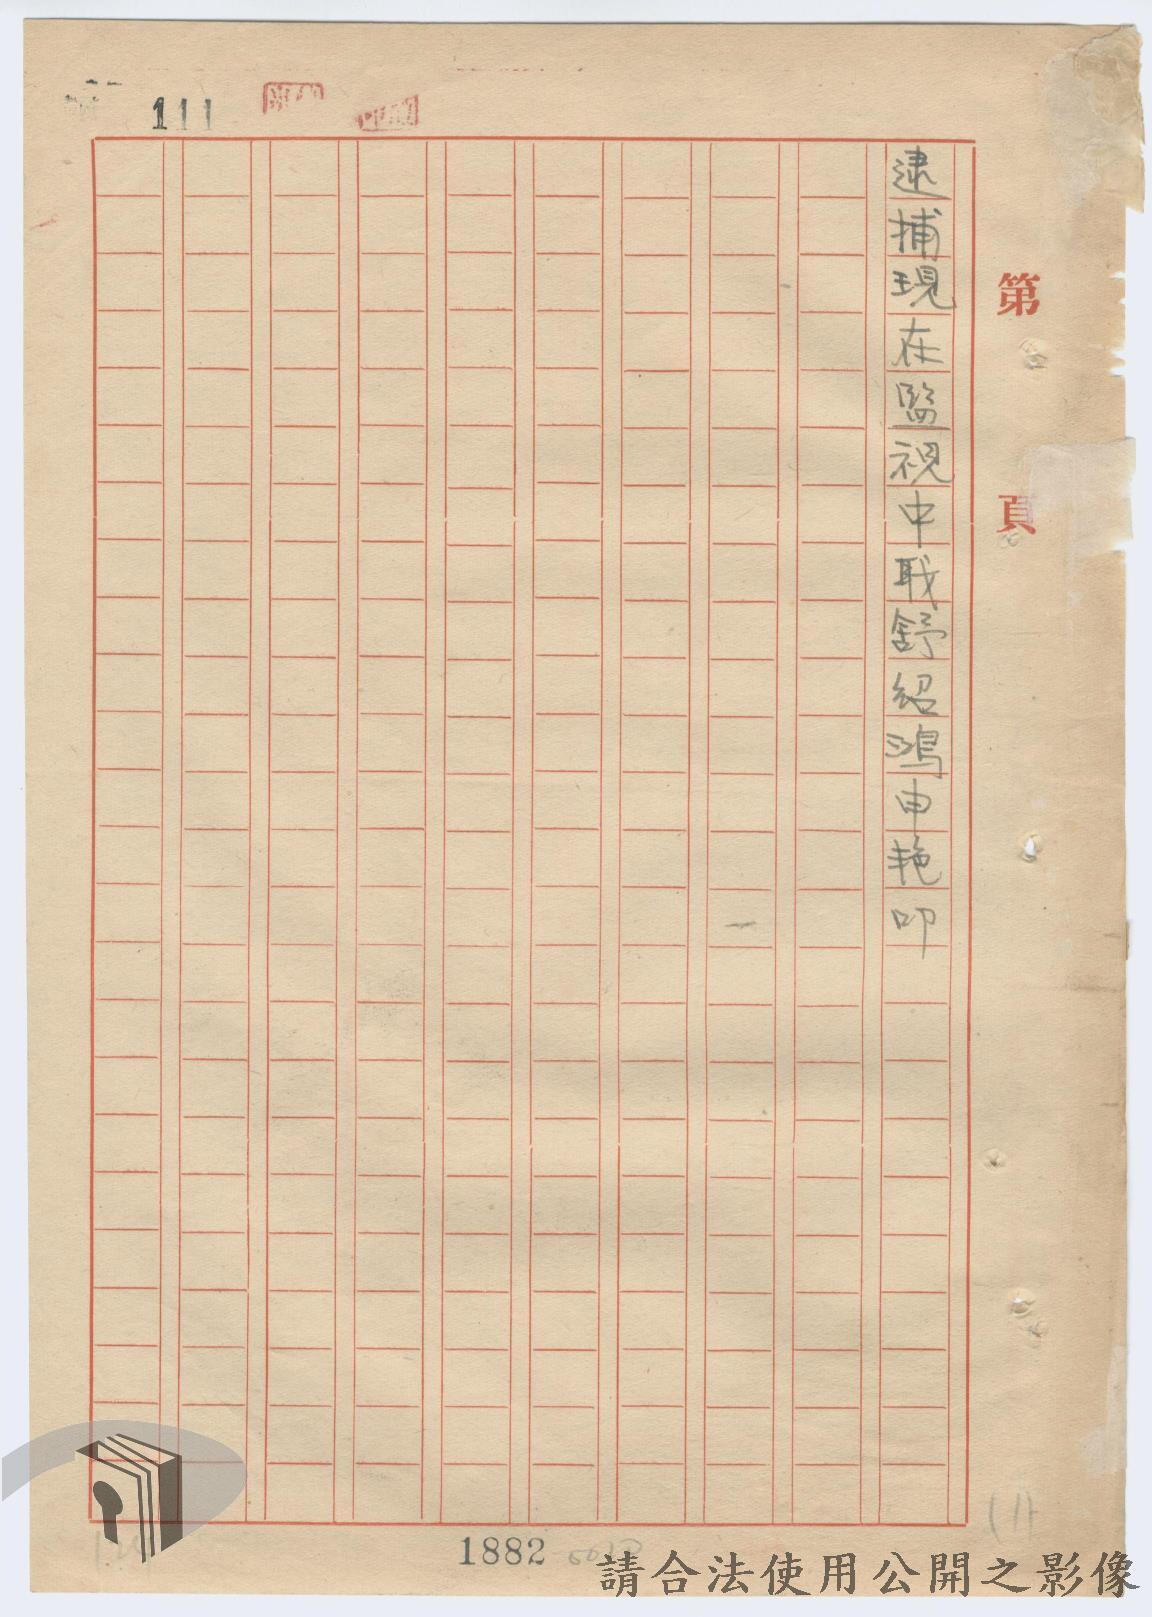 111
第 頁
逮捕現在監視中職舒紹鴻申艳叩
1882
請合法使用公開之影像